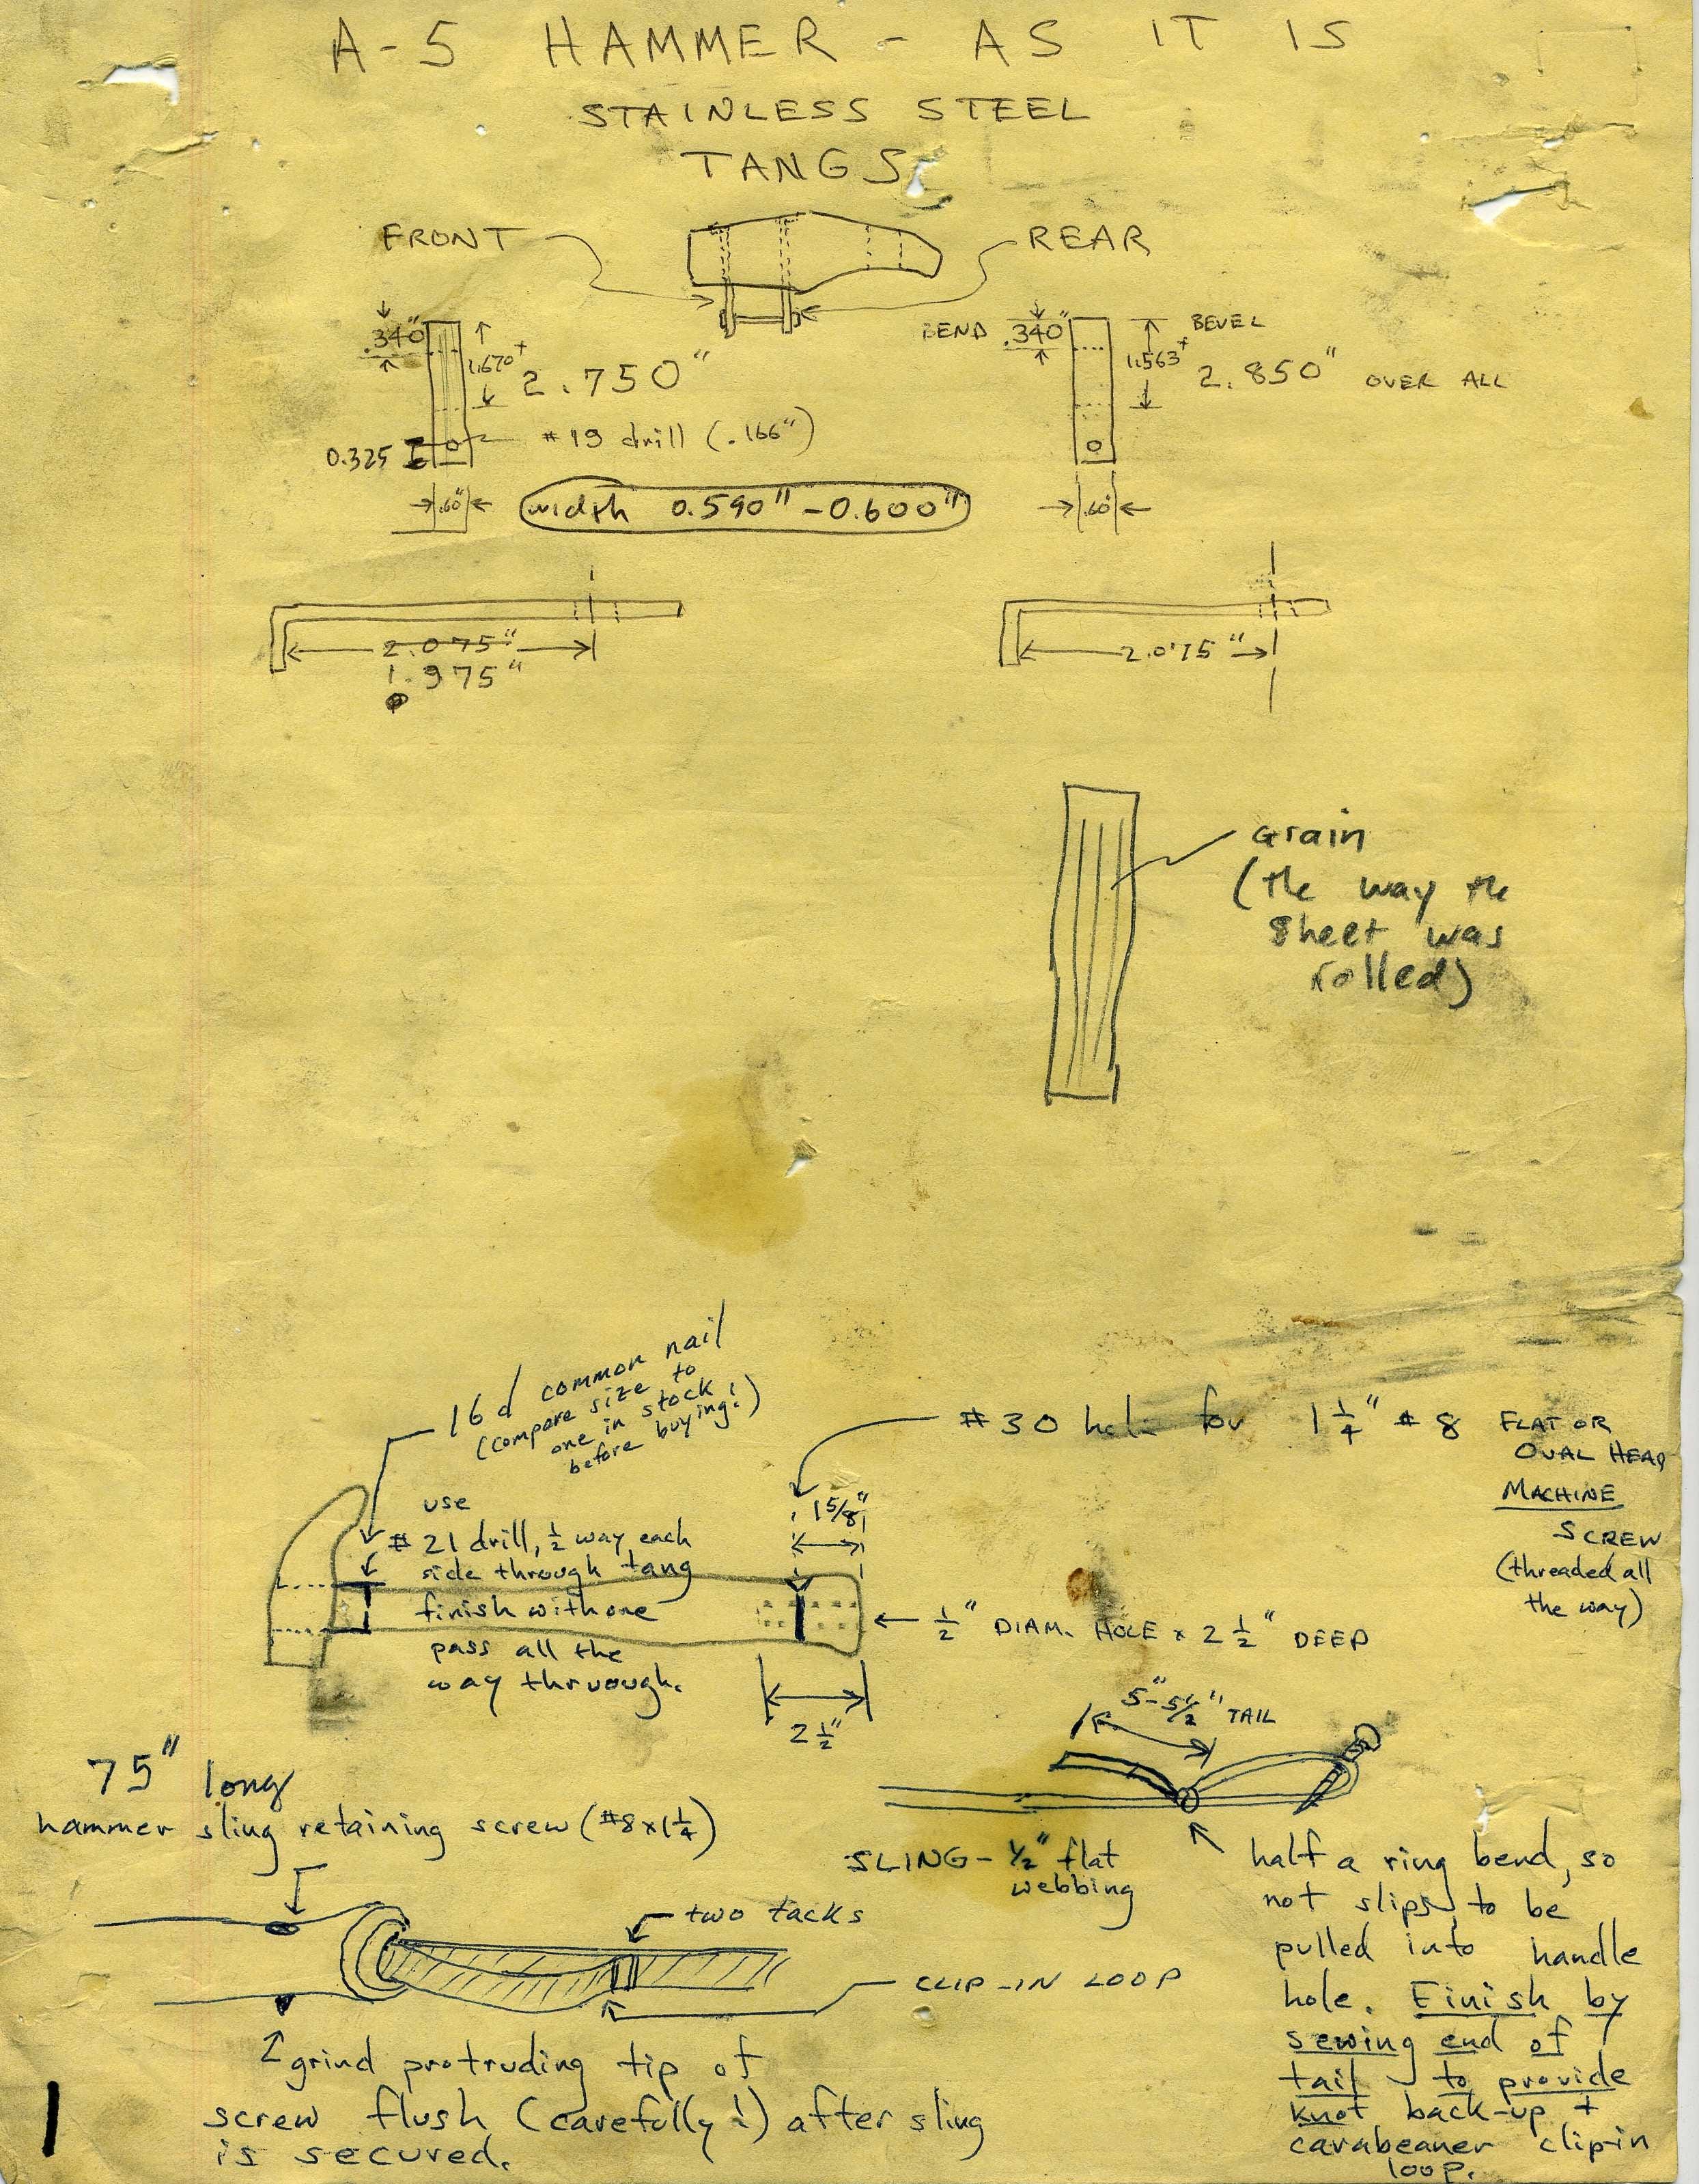 A-5 HAMMER - AS IT IS
STAINLESS STEEL
TANGS
FRONT
REAR
.340"
1.670+
2.750"
#19 drill (.166")
0.325
.60"
width 0.590" - 0.600"
BEND .340"
BEVEL
1.563+
2.850" OVER ALL
.60"
2.075"
1.975"
2.075"
Grain
(the way the
sheet was
rolled)
16d common nail
(compare size to
one in stock
before buying!)
#30 hole for 1 1/4" #8 FLAT OR
OVAL HEAD
MACHINE
SCREW
(threaded all
the way)
1 5/8"
use
#21 drill, 1/2 way each
side through tang
finish with one
pass all the
way thruough.
1/2" DIAM. HOLE x 2 1/2" DEEP
2 1/2"
5"-5 1/2" TAIL
75" long
hammer sling retaining screw (#8x1 1/4)
SLING - 1/2" flat
webbing
half a ring bend, so
not slips, to be
pulled into handle
hole. Finish by
sewing end of
tail to provide
knot back-up +
carabeaner clip-in
loop.
two tacks
CLIP-IN LOOP
grind protruding tip of
screw flush (carefully!) after sling
is secured.
1